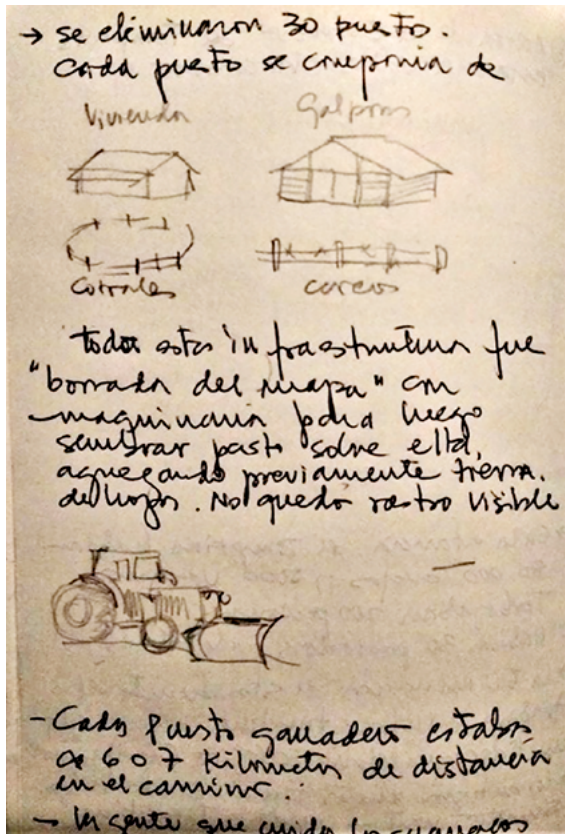 → se eliminaron 30 puestos.
Cada puesto se componia de
Vivienda Galpones
Corrales cercos
toda esta infraestructura fue
"borrada del mapa" con
maquinaria para luego
sembrar pasto sobre ella,
agregando previamente tierra.
de hojas. No quedo rastro visible
- Cada puesto ganadero estaba
a 6 o 7 Kilometros de distancia
en el camino.
- la gente que cuida los guanacos